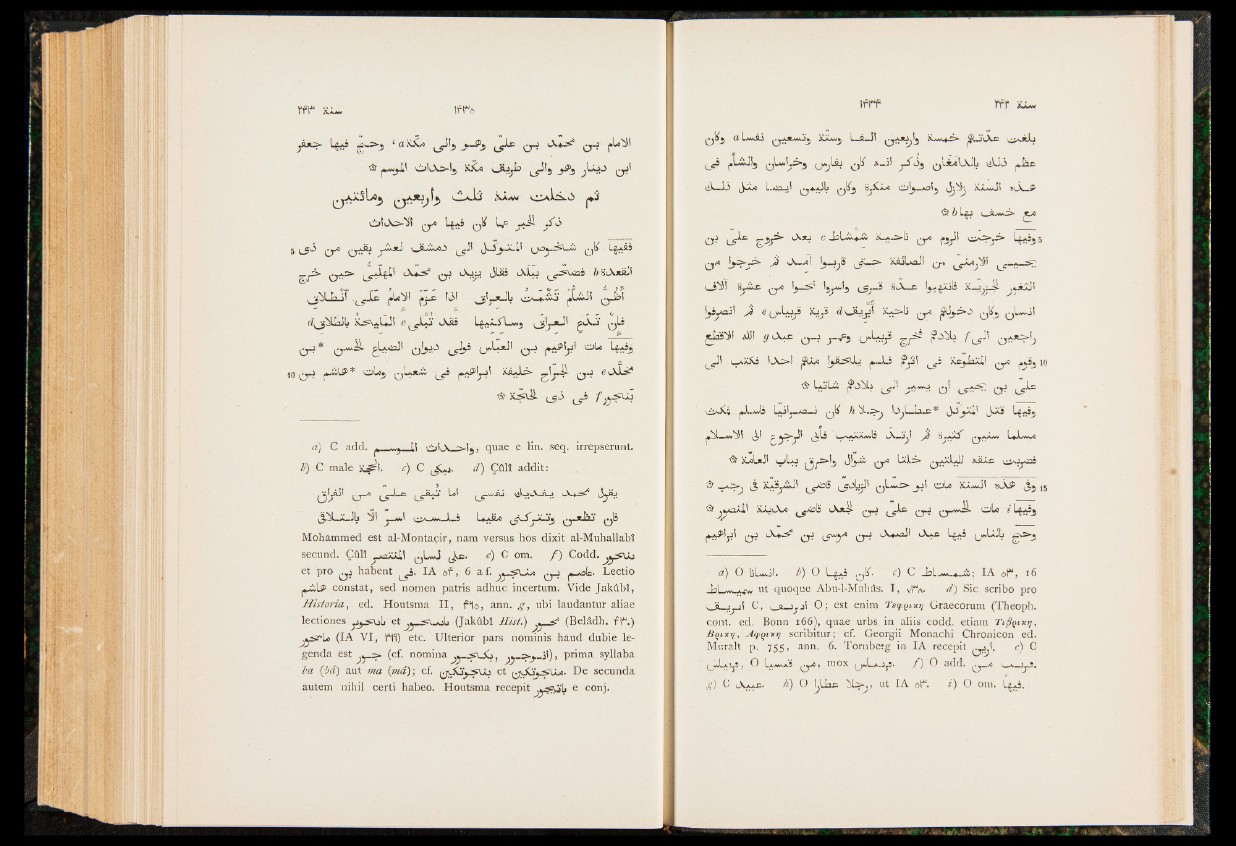 ١٤٣٤ سنة ٢٤٢
بلغت عدّتهم خمسة وأربعين الفا وستّة وتسعين نفسا a وكان
عظم ذلك بالدامغان وذُكر انه كان بفارس وخراسان والشأم فى
هذه السنة زلازل وأصوات منكرة وكان باليمن ايضا مثل ذلك
مع خسف بها b ۞
5 وفيها خرجت الروم من ناحية شمشاط c بعد خروج علىّ بن
يحيى الأرمنىّ من الصائفة حتى قاربوا آمد ثم خرجوا من
الثغور الجزريّة فانتهبوا عدّة قرى وأسروا نحوا من عشرة آلاف
انسان وكان دخولهم من ناحية أبريق d قرية قريباس e ثم انصرفوا
راجعين الى f بلادهم فخرج قريباس وعمر بن عبد g الله الأقطع
10 وقوم من المتطوّعة فى اثرهم فلم يلحقوا منهم احدا فكتب الى
علىّ بن يحيى ان يسير الى بلادهم شاتيا ۞
وفيها قتل المتوكّل عطاردا* رجلا h كان نصرانيا فاسلم فمكث
مسلما سنين كثيرة ثم ارتدّ فاستتيب فأبى الرجوع الى الاسلام
فضربت عنقه لليلتين خلتا من شوّال وأحرق بباب العامّة ۞
15 وفى هذه السنة مات ابو حسّان الزيادىّ قاضى الشرقيّة فى رجب ۞
وفيها i مات الحسن بن علىّ بن الجعد قاضى مدينة المنصور ۞
وحجّ بالناس فيها عبد الصمد بن موسى بن محمّد بن ابراهيم
a) O انسانا. b) O كان فيها. c) C شمساط; IA ٥٣, 16
سميساط ut quoque Abu-l-Mahâs. I, ٧٣٨. d) Sic scribo pro
C, O; est enim Τεφρικη Graecorum (Theoph.
cont. ed. Bonn 166), quae urbs in aliis codd. etiam Τιβρικη,
Βρικη, Αφρικη scribitur; cf. Georgii Monachi Chronicon ed.
Muralt p. 755, ann. 6. Tornberg in IA recepit ارين. e) C
O mox f) O add. قريب من.
g) C عبيد. h) O رجلا عطارا, ut IA ٥٣. i) O om. فيها.
سنة ٢٤٣ ١٤٣٥
الامام بن محمّد بن علىّ وهو والى مكّة a، وحجّ فيها جعفر
ابن دينار وهو والى طريق مكّة وأحداث الموسم ۞
ثم دخلت سنة ثلث وأربعين ومائتين
ذكر الخبر عما كان فيها من الأحداث
5 ففيها كان شخوص المتوكّل الى دمشق لعشر بقين من ذى
القعدة b فضحّى ببلد فقال يزيد بن محمّد المهلّبىّ حين خرج
أَظُنُّ الشأمَ تَشْمَتُ بالعِراقِ إذا عَزَمَ الإمامُ على ٱنْطِلاقِ
فإن تَدَعِ العِراقَ وساكِنيها فقد تُبْلَى c المَلِيحَةُ بالطَلاقِ d
وفيها مات ابراهيم بن العبّاس فولى ديوان الضياع الحسن *بن
10 مخلّد e بن الجرّاح خليفة ابراهيم فى شعبان ومات *هاشم بن
بنجور f فى ذى الحجّة ۞
a) C add. وأحداث الموسم, quae e lin. seq. irrepserunt.
b) C male الحجة. c) C يبكى. d) Çûlî addit:
يقول محمد يفديك نفسى لما تبقى على من الفراق
Mohammed est al-Montaçir, nam versus hos dixit al-Muhallabî
secund. Çûlî على لسان المنتصر. e) C om. f) Codd.
et pro بن habent فى. IA ٥٤, 6 a f. عاصم بن منجور. Lectio
هاشم constat, sed nomen patris adhuc incertum. Vide Jakûbî,
Historia, ed. Houtsma II, ٦١٥, ann. g, ubi laudantur aliae
lectiones et (Jakûbî Hist.) (Belâdh. ٣٢٣.)
(IA VI, ٣٢٦) etc. Ulterior pars nominis haud dubie le-
genda est جور (cf. nomina), prima syllaba
ba (bâ) aut ma (mâ); cf. et De secunda
autem nihil certi habeo. Houtsma recepit e conj.